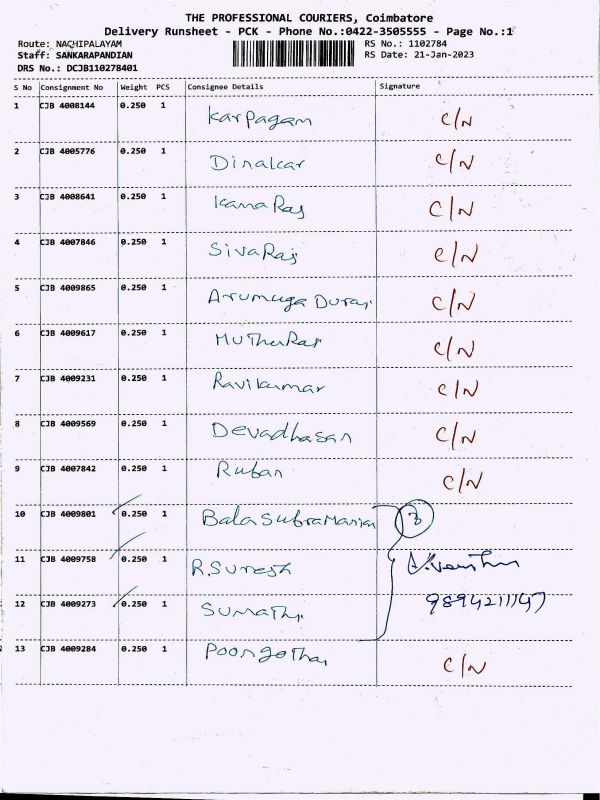 THE PROFESSIONAL COURIERS, Coimbatore
Delivery Runsheet - PCK - Phone No.:0422-3505555 - Page No.:1
Route: NACHIPALAYAM RS No.: 1102784
Staff: SANKARAPANDIAN RS Date: 21-Jan-2023
DRS No.: DCJB110278401
S No Consignment No Weight PCS Consignee Details Signature
1 CJB 4008144 0.250 1 Karpagam C/N
2 CJB 4005776 0.250 1 Dinakar C/N
3 CJB 4008641 0.250 1 Kana Raj C/N
4 CJB 4007846 0.250 1 Siva Raj C/N
5 CJB 4009865 0.250 1 Arumuga Durai C/N
6 CJB 4009617 0.250 1 MuThuRaj C/N
7 CJB 4009231 0.250 1 Ravikumar C/N
8 CJB 4009569 0.250 1 Devadhasan C/N
9 CJB 4007842 0.250 1 Ruban C/N
10 CJB 4009801 0.250 1 Bala SubraManian 3
11 CJB 4009758 0.250 1 R.Suresh
12 CJB 4009273 0.250 1 Sumathi 9894211147
13 CJB 4009284 0.250 1 PoongoThai C/N